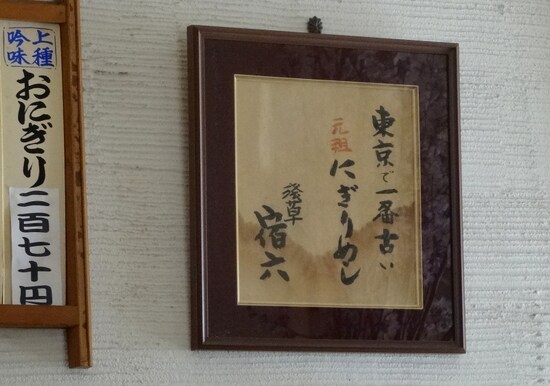 上種
吟味
おにぎり二百七十円
東京で一番古い
元祖
にぎりめし
浅草
宿六